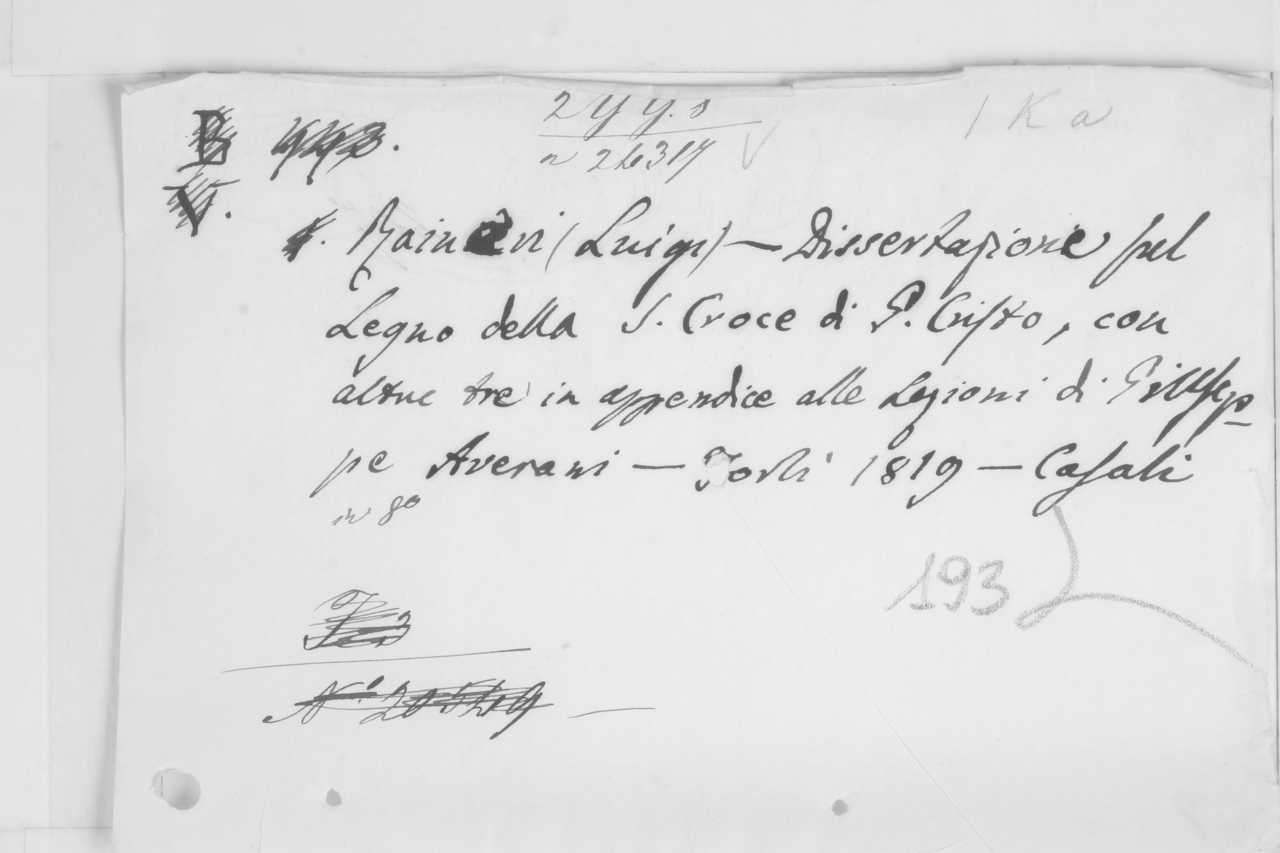 2 y y. s
1 K a
B
n 26317
V.
Rainieri (Luigi) — Dissertazione sul
Legno della S. Croce di G. Cristo, con
altre tre in appendice alle Lezioni di Giusep-
pe Averani — Forlì 1819 — Casali
in 8º
193
Nº 20549